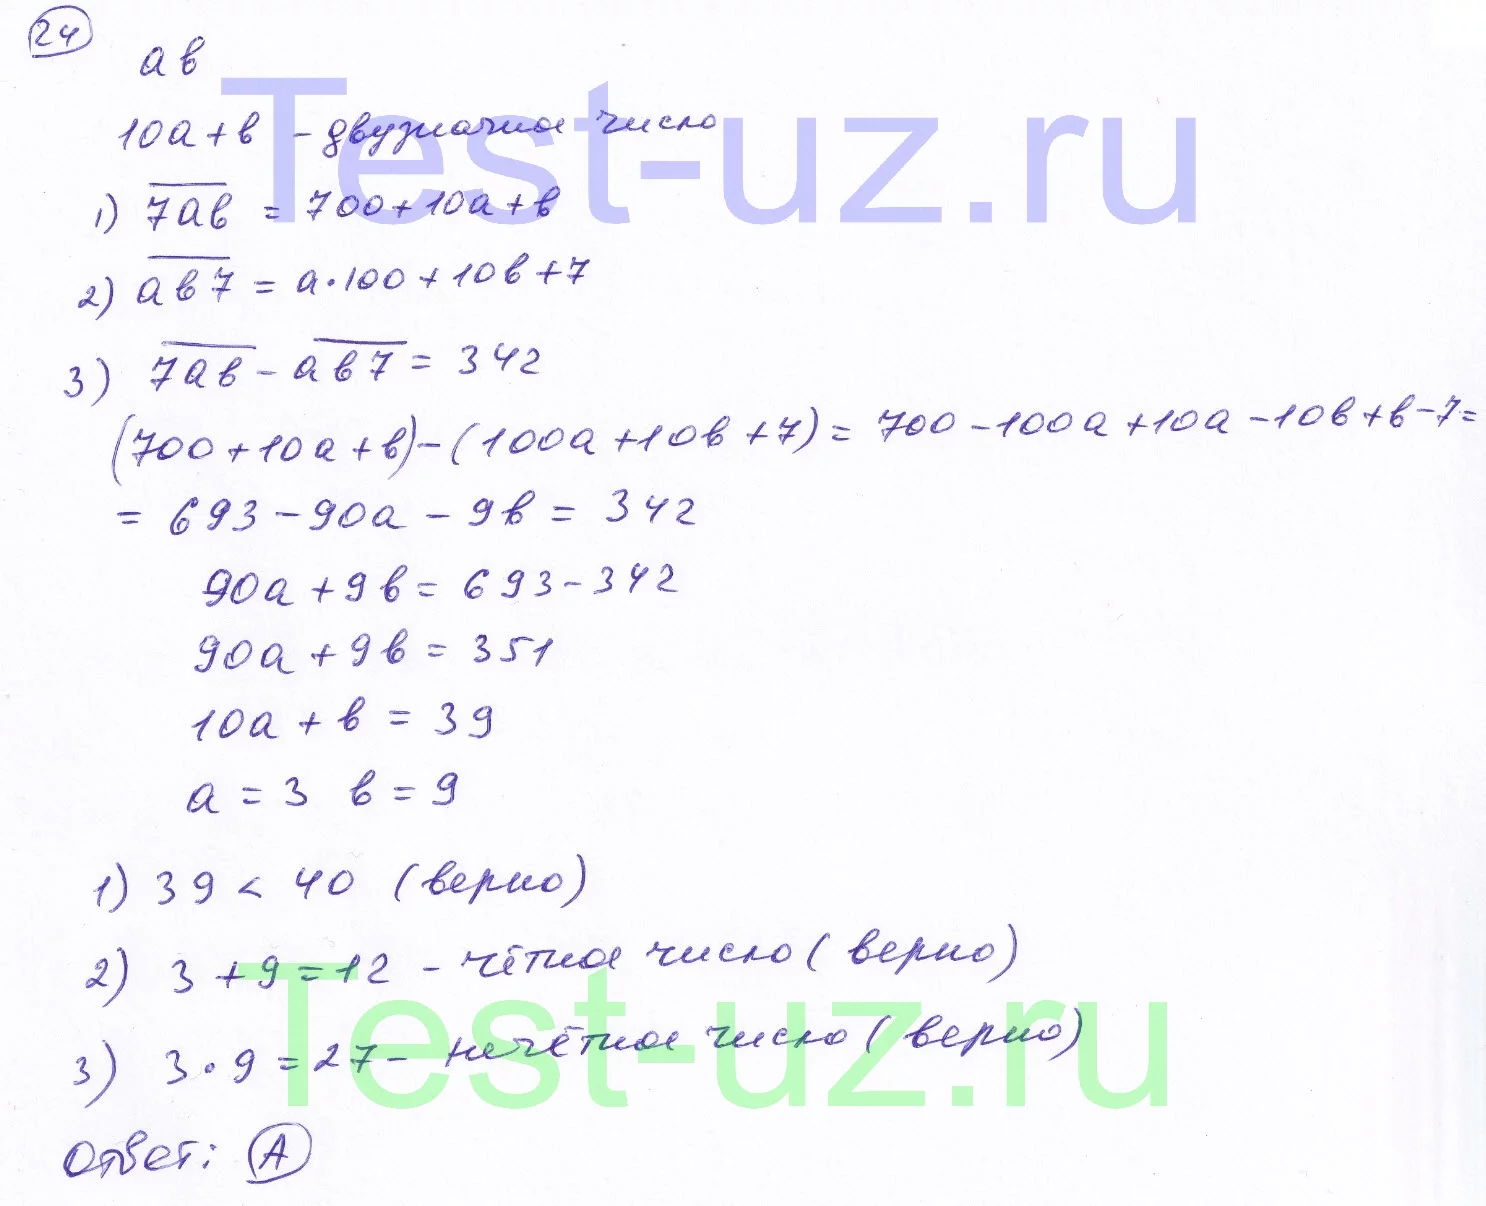 24
ав
10а+в - двузначное число
Test-uz.ru
1) 7ав = 700+10а+в
2) ав7 = а·100+10в+7
3) 7ав - ав7 = 342
(700+10а+в)-(100а+10в+7)= 700-100а+10а-10в+в-7=
= 693-90а-9в = 342
90а+9в = 693-342
90а+9в = 351
10а+в = 39
а = 3 в = 9
1) 39 < 40 (верно)
2) 3+9=12 - чётное число (верно)
Test-uz.ru
3) 3·9=27- нечётное число (верно)
Ответ: А